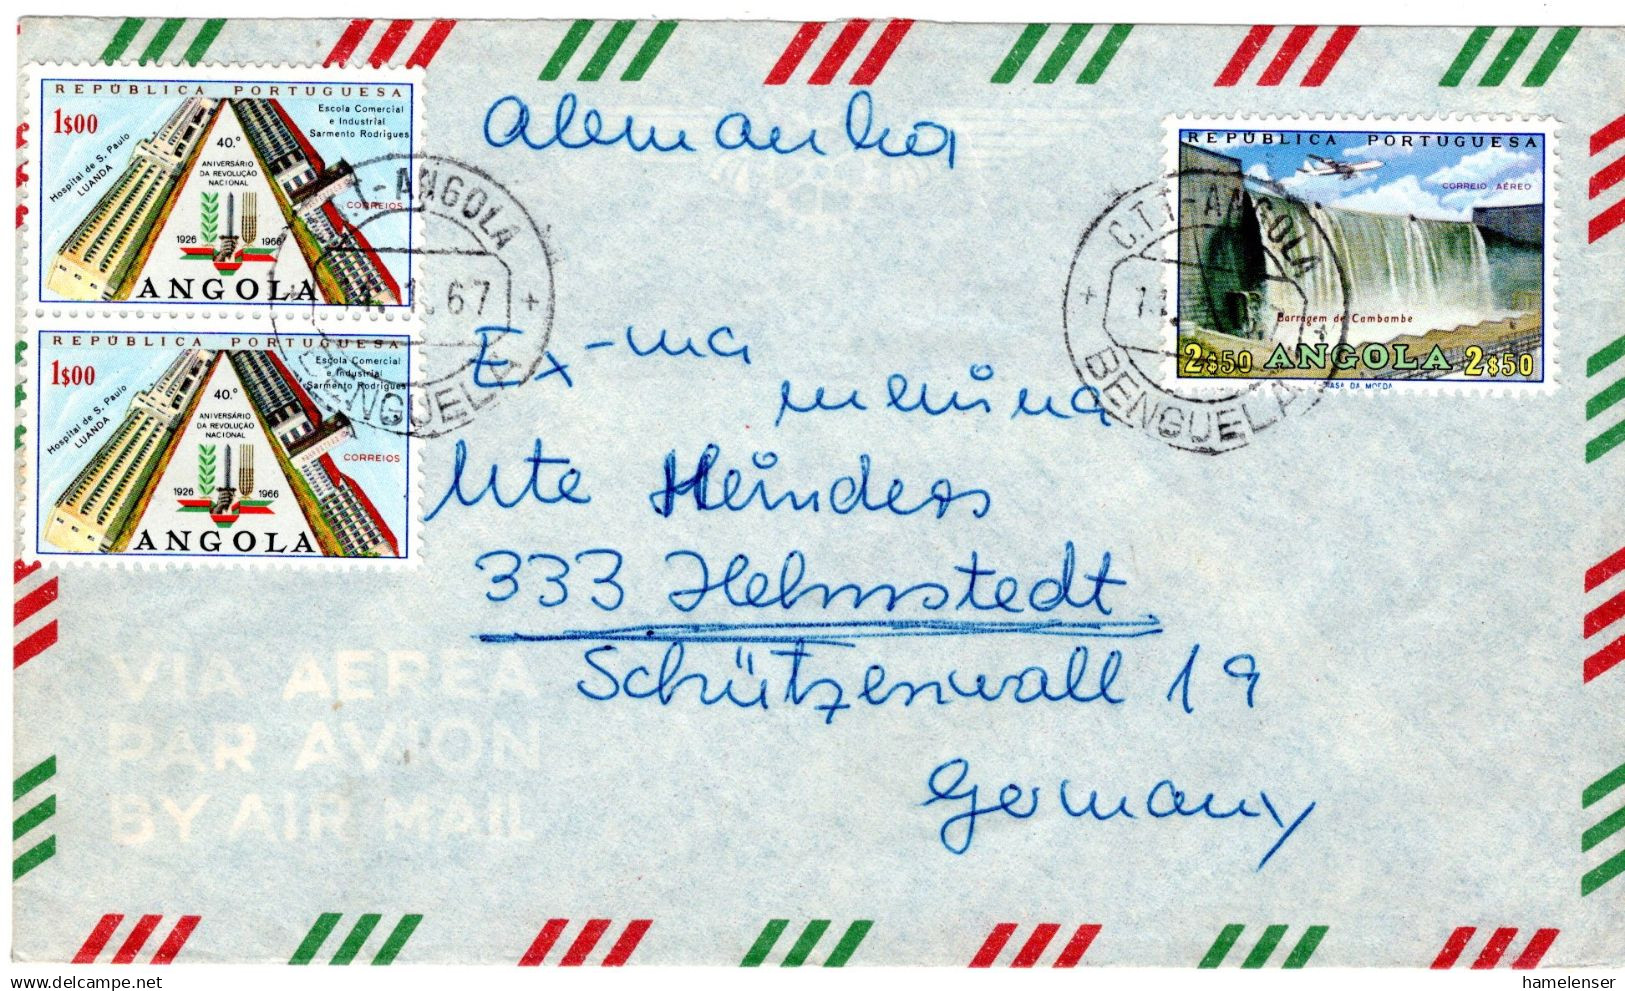 REPÚBLICA PORTUGUESA
1$00
Escola Comercial
e Industrial
Sarmento Rodrigues
Hospital de S. Paulo
LUANDA
40.°
ANIVERSÁRIO
DA REVOLUÇÃO
NACIONAL
CORREIOS
1926 1966
ANGOLA
REPÚBLICA PORTUGUESA
1$00
Escola Comercial
e Industrial
Sarmento Rodrigues
Hospital de S. Paulo
LUANDA
40.°
ANIVERSÁRIO
DA REVOLUÇÃO
NACIONAL
CORREIOS
1926 1966
ANGOLA
T.-ANGOLA
67
BENGUELA
Alemanha
REPÚBLICA PORTUGUESA
CORREIO AÉREO
Barragem de Cambambe
2$50 ANGOLA 2$50
CASA DA MOEDA
C.T.T-ANGOLA
BENGUELA
Ex-ma
menina
Ute Heinders
333 Helmstedt
Schützenwall 19
Germany
VIA AEREA
PAR AVION
BY AIR MAIL
hamelenser